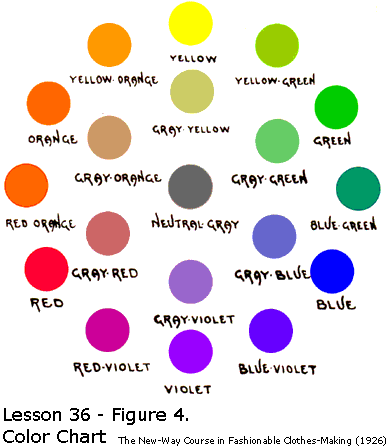 YELLOW
YELLOW-ORANGE
YELLOW-GREEN
GRAY-YELLOW
ORANGE
GREEN
GRAY-ORANGE
GRAY-GREEN
RED ORANGE
NEUTRAL-GRAY
BLUE-GREEN
GRAY-RED
GRAY-BLUE
RED
BLUE
GRAY-VIOLET
RED-VIOLET
BLUE-VIOLET
VIOLET
Lesson 36 - Figure 4.
Color Chart The New-Way Course in Fashionable Clothes-Making (1926)